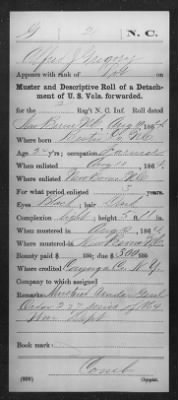 G 2 N. C.
Alfred J. Gregory
Appears with rank of Pvt on
Muster and Descriptive Roll of a Detachment
of U. S. Vols. forwarded.
for the 2 Reg't N. C. Inf. Roll dated
New Berne N.C., Aug 186
Where born
Age 2 y'rs; occupation Farmer
When enlisted Aug 186
Where enlisted New Berne N.C.
For what period enlisted 3 years.
Eyes ; hair Dark
Complexion Light; 5 ft. 11 in.
When mustered in Aug 186
Where mustered in New Berne N.C.
Bounty paid $ 100; due $ 300 100
Where credited Cayuga Co N.Y.
Company to which assigned
Remarks: Mustered under Genl
Order 227 series of 64
War Dept
Book mark:
(338) Copyist.